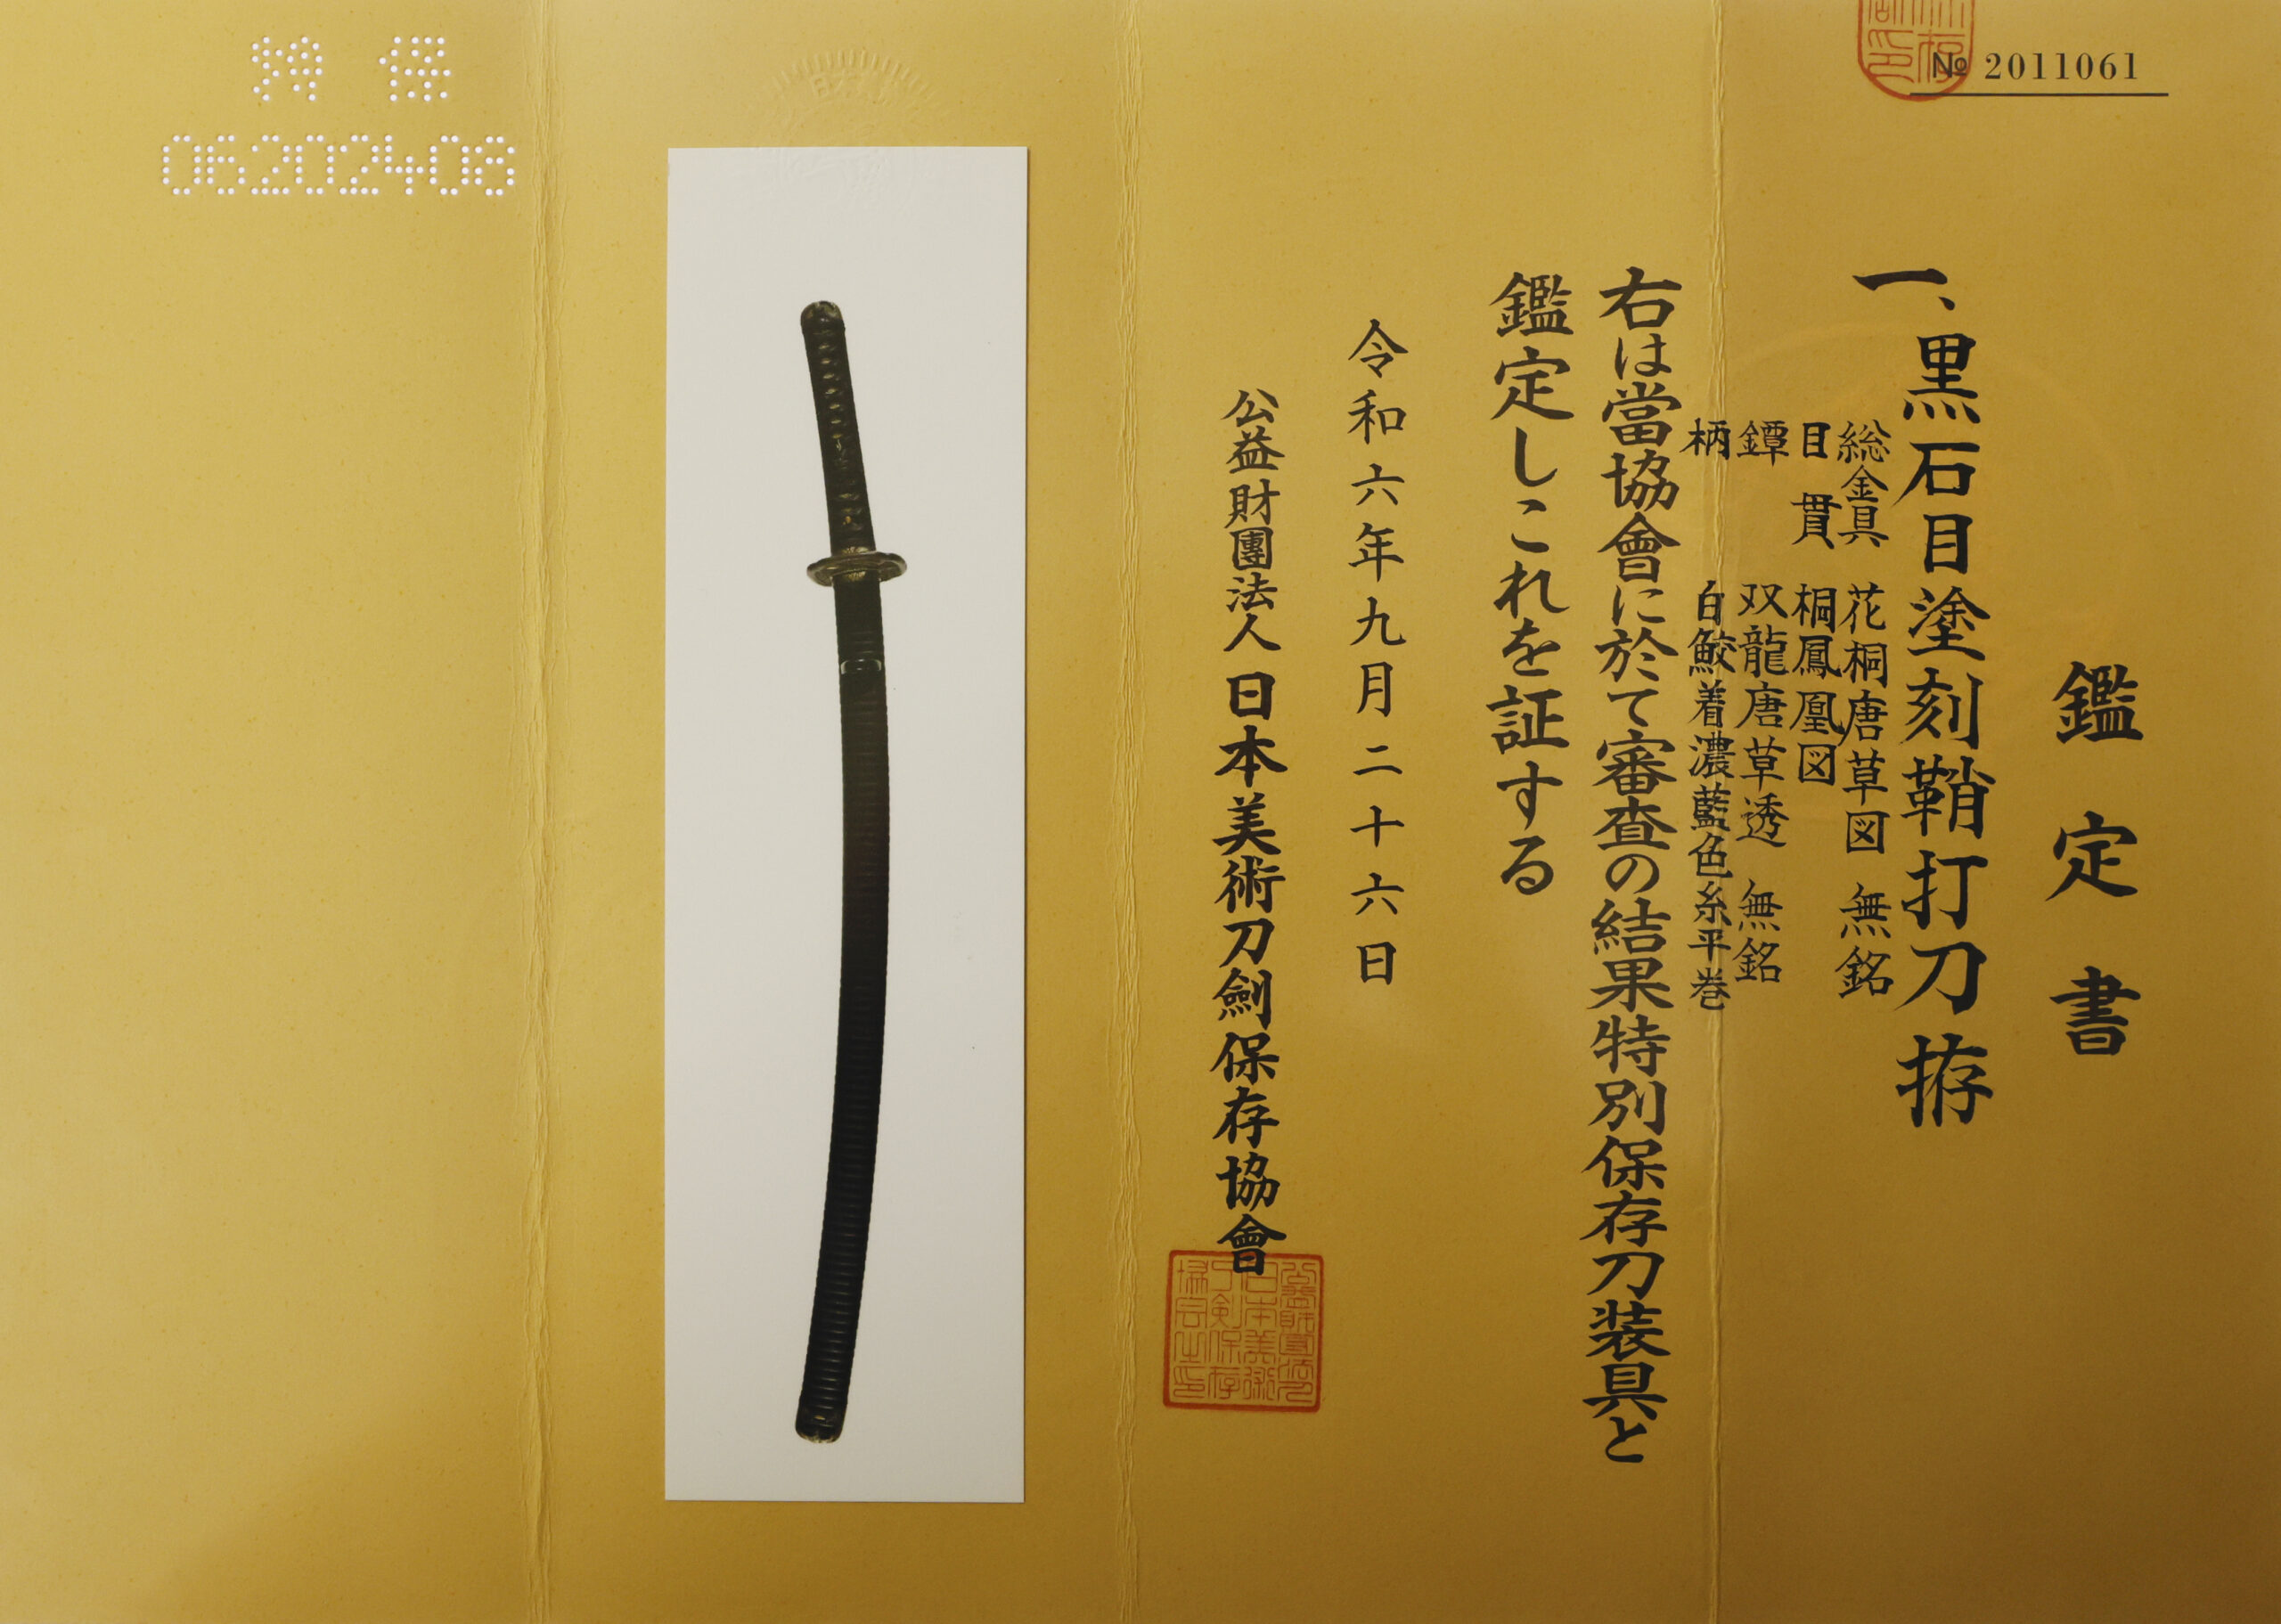 № 2011061
鑑定書
一、黒石目塗刻鞘打刀拵
総金具 花桐唐草図 無銘
目貫 桐鳳凰図
鐔 双龍唐草透 無銘
柄 白鮫着濃藍色糸平巻
右は當協會に於て審査の結果特別保存刀装具と
鑑定しこれを証する
令和六年九月二十六日
公益財團法人 日本美術刀劍保存協會
特保
06202408